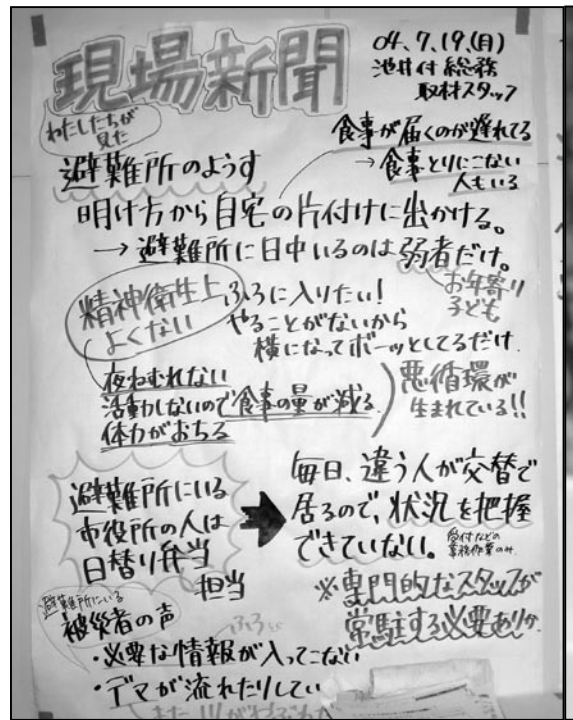 現場新聞
04.7.19.(月)
池井付 総務
取材スタッフ
わたしたちが
見た
避難所のようす
食事が届くのが遅れてる
→食事とりにこない
人もいる
明け方から自宅の片付けに出かける。
→避難所に日中いるのは弱者だけ。
お年寄り
子ども
精神衛生上
よくない
ふろに入りたい!
やることがないから
横になってボーッとしてるだけ.
夜ねむれない
活動しないので食事の量が減る.
体力がおちる
悪循環が
生まれている!!
避難所にいる
市役所の人は
日替り弁当
担当
毎日、違う人が交替で
居るので、状況を把握
できていない。
受付などの
業務作業のみ.
※専門的なスタッフが
常駐する必要ありか.
避難所にいる
被災者の声
・必要な情報が入ってこない
・デマが流れたりしてい